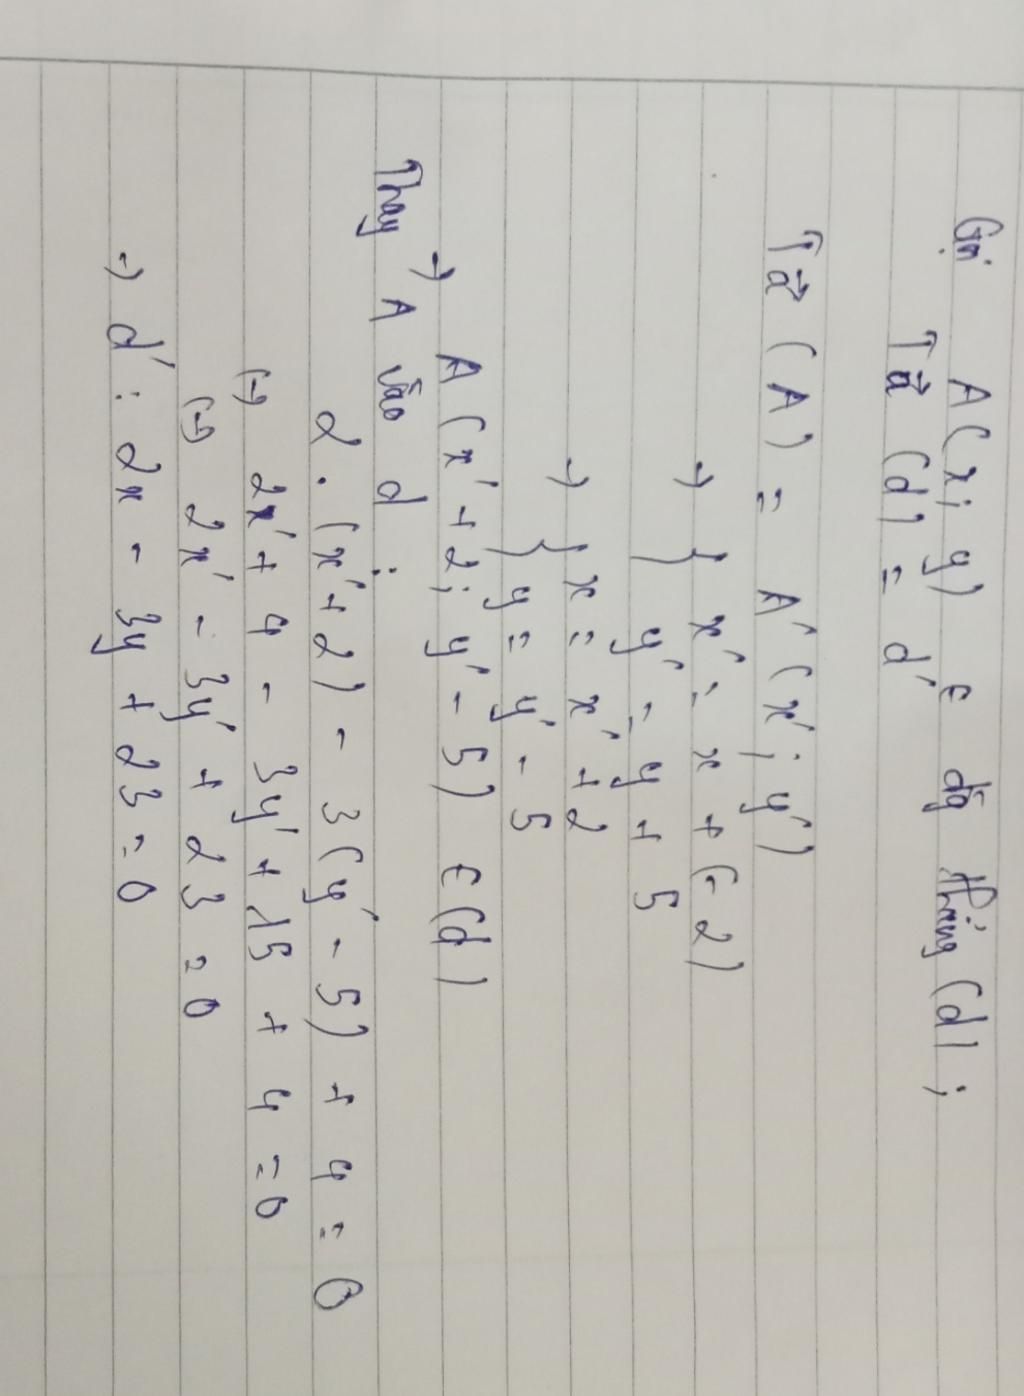 Gọi A(x; y) ∈ đg thẳng (d);
Ta⃗ (d) = d'
Ta⃗ (A) = A' (x'; y')
→ { x' = x + (-2)
y' = y + 5
→ { x = x' + 2
y = y' - 5
→ A (x' + 2; y' - 5) ∈ (d)
Thay A vào d:
2.(x' + 2) - 3(y' - 5) + 4 = 0
(→) 2x' + 4 - 3y' + 15 + 4 = 0
(→) 2x' - 3y' + 23 = 0
→ d': 2x - 3y + 23 = 0